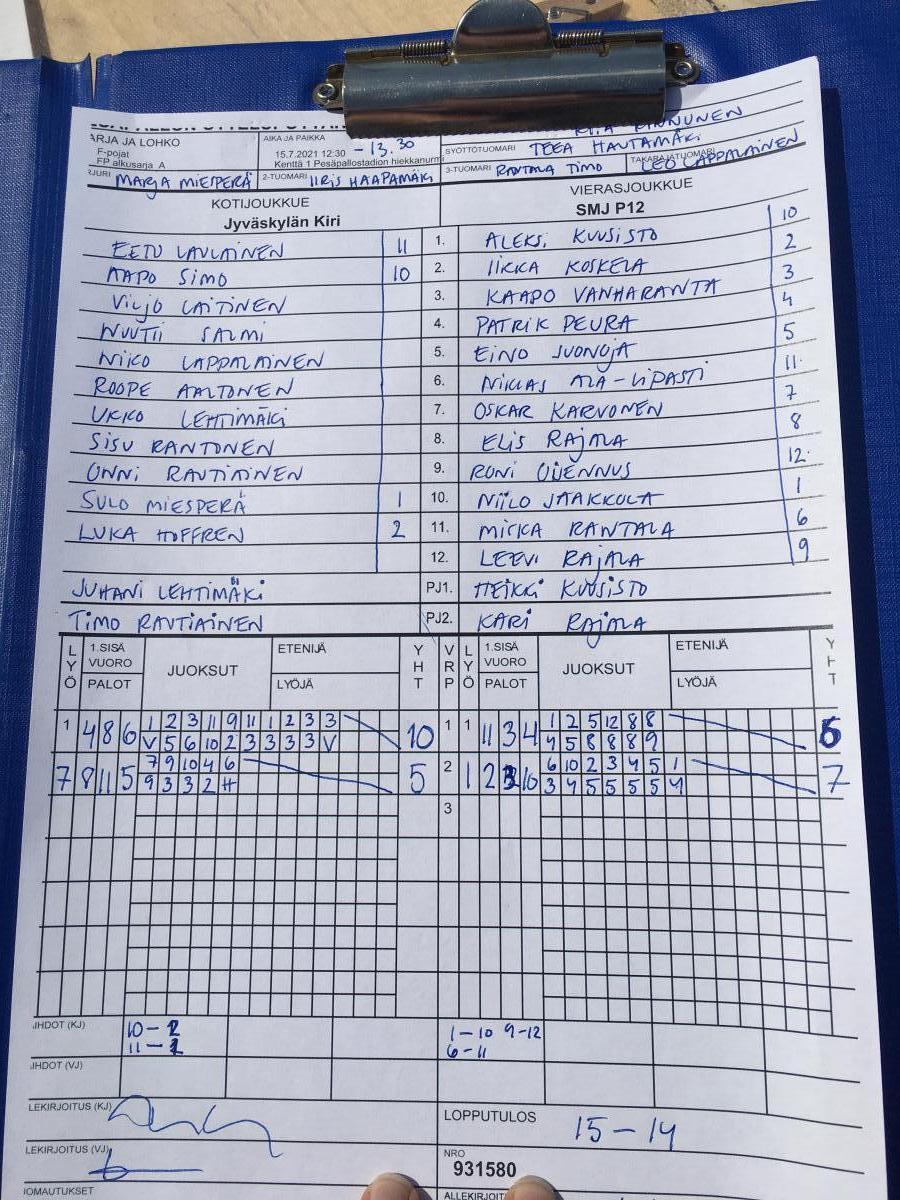 ARJA JA LOHKO
F-pojat
FP alkusarja A
AIKA JA PAIKKA
15.7.2021 12:30 - 13.30
Kenttä 1 Pesäpallostadion hiekkanurm
SYÖTTÖTUOMARI TEEA HAUTAMÄKI
RJURI MARJA MIESPERÄ
2-TUOMARI IIRIS HAAPAMÄKI
3-TUOMARI RANTALA TIMO
TAKARAJATUOMARI LEO LAPPALAINEN
KOTIJOUKKUE
Jyväskylän Kiri
VIERASJOUKKUE
SMJ P12
EETU LAULAINEN 11 1. ALEKSI KUUSISTO 10
AAPO SIMO 10 2. IIKKA KOSKELA 2
VILJO LAITINEN 3. KAAPO VANHARANTA 3
NUUTTI SALMI 4. PATRIK PEURA 4
NIKO LAPPALAINEN 5. EINO JUONOJA 5
ROOPE AALTONEN 6. NIKLAS ALA-LIPASTI 11.
UKKO LEHTIMÄKI 7. OSKAR KARVONEN 7
SISU RANTONEN 8. ELIS RAJALA 8
ONNI RAUTIAINEN 9. RONI 12.
SULO MIESPERÄ 1 10. NIILO JAAKKOLA 1
LUKA HOFFREN 2 11. MIIKA RANTALA 6
12. LEEVI RAJALA 9
JUHANI LEHTIMÄKI PJ1. HEIKKI KUUSISTO
TIMO RAUTIAINEN PJ2. KARI RAJALA
LYÖ 1.SISÄ VUORO PALOT JUOKSUT ETENIJÄ LYÖJÄ YHT VRP LYÖ 1.SISÄ VUORO PALOT JUOKSUT ETENIJÄ LYÖJÄ YHT
1 4 8 6 1 2 3 11 9 11 1 2 3 3 10 1 1 11 3 4 1 2 5 12 8 8 6
V 5 6 10 2 3 3 3 3 V 4 5 8 8 8 9
7 8 11 5 7 9 10 4 6 5 2 1 2 10 6 10 2 3 4 5 1 7
9 3 3 2 H 3 4 5 5 5 5 4
3
IHDOT (KJ) 10- 1-10 9-12
11- 6-11
IHDOT (VJ)
LEKIRJOITUS (KJ)
LOPPUTULOS 15-14
LEKIRJOITUS (VJ)
NRO
931580
IOMAUTUKSET
ALLEKIRJOIT